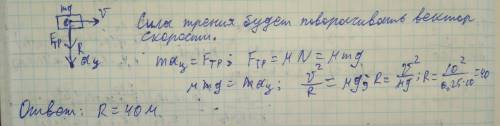 mg
v
Fтр
R
aц
Сила трения будет поворачивать вектор
скорости.
maц = Fтр; Fтр = μN = μmg
μmg = maц; v²/R = μg; R = v²/μg; R = 10²/0,25·10 = 40
Ответ: R = 40 м.